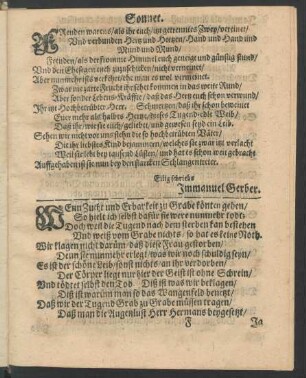 Sonnet.
Freuden warens/ als ihr euch/ ihr getreuen Zwey/ vereinet/
Und verbunden Hertz und Hertzen/ Hand und Hand und
Mund und Mund/
Freuden/ als der fromme Himmel euch geneigt und günstig stund/
Und den Ehesegen euch zuzuschicken/ nicht verneinet/
Aber nunmehr ists verkehret/ ehe man es wol vermeinet.
Zwar die zarte Frucht ihr seht kommen in das weite Rund/
Aber sonder Lebens-Kräffte/ daß das Hertz euch schon verwund/
Ihr im Hochbetrübter Herr: Schmertzen/ daß ihr schon beweinet
Euer mehr als halbes Hertz/ dieses Tugend-edle Weib/
Daß ihr/ wie sie euch/ geliebet/ und gewesen seyd ein Leib.
Sehen wir nicht vor uns stehen die so hochbetrübten Väter/
Die ihr liebstes Kind bejammern/ welches sie zwar itzt verlacht
Weil sie lebt bey tausend Lüsten/ und hat es schon weit gebracht
Auffgehaben ist sie nun bey der starcken Schlangentreter.
Eilig schriebs
Immanuel Gerber.
Wenn Zucht und Erbarkeit zu Grabe könten gehen/
So hielt ich selbst dafür sie wers nunmehr todt:
Doch weil die Tugend nach dem sterben kan bestehen
Und weiß vom Grabe nichts/ so hat es keine Noth.
Wir klagen nicht darüm/ daß diese Frau gestorben/
Denn sterben mehr erlegt/ was wir noch schuldig seyn/
Es ist der schöne Leib/ sonst nichts an ihr verdorben/
Der Cörper lieget nur hier der Geist ist ohne Schrein/
Und tödtet selbst den Tod. Diß ist was wir beklagen/
Diß ist warüm man so das Wangenfeld benetzt/
Daß wir der Tugend Grab zu Grabe müssen tragen/
Daß man die Augenlust Herr Hermans beygesetzt/
F Ja